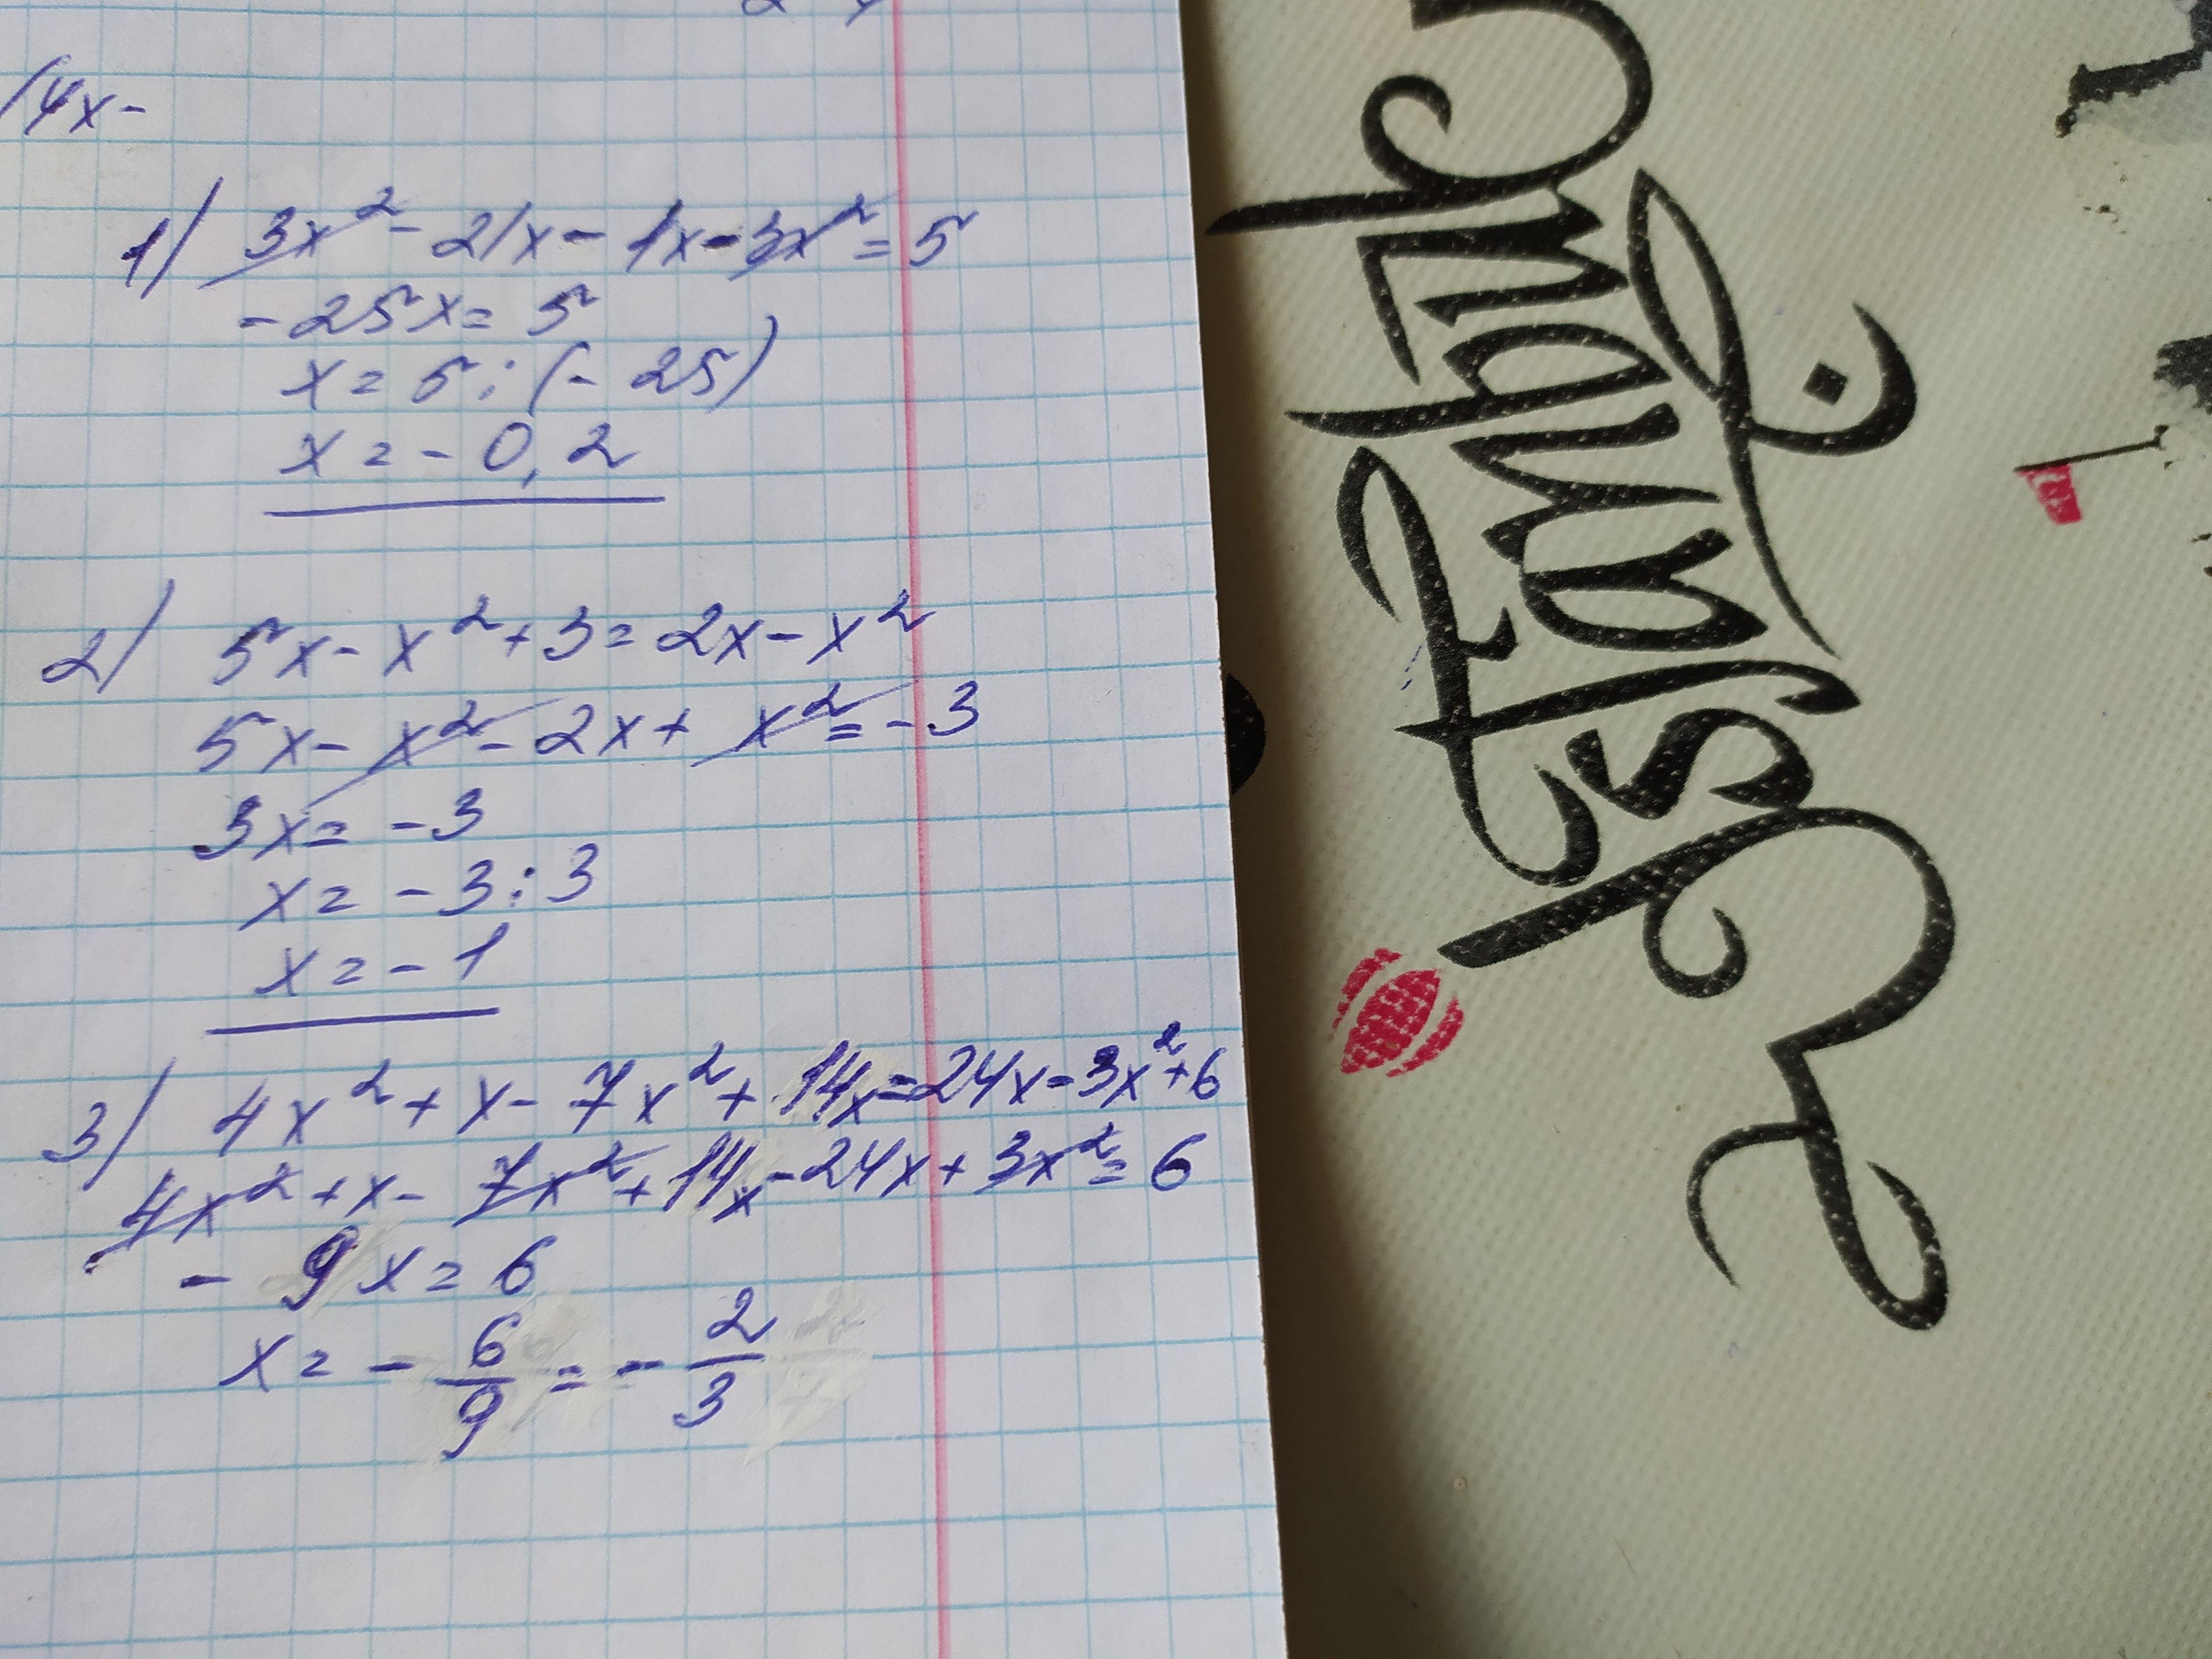 (4x -
1) 3x² - 21x - 1x - 3x² = 5
- 25x = 5
x = 5 : (- 25)
x = - 0,2
2) 5x - x² + 3 = 2x - x²
5x - x² - 2x + x² = - 3
3x = - 3
x = - 3 : 3
x = - 1
3) 4x² + x - 7x² + 14x = 24x - 3x² + 6
4x² + x - 7x² + 14x - 24x + 3x² = 6
- 9x = 6
x = - 6/9 = - 2/3